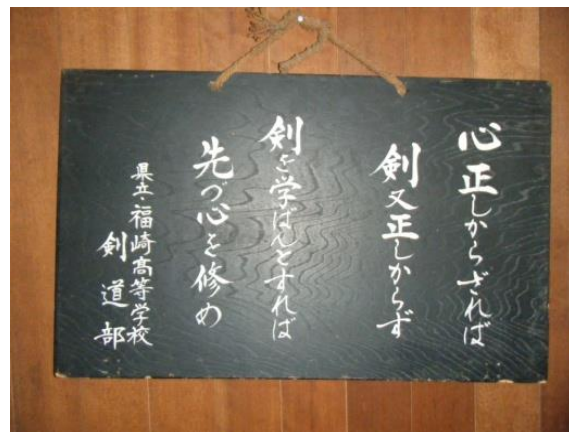 心正しからざれば
剣又正しからず
剣を学ばんとすれば
先づ心を修め
県立・福崎高等学校
剣道部